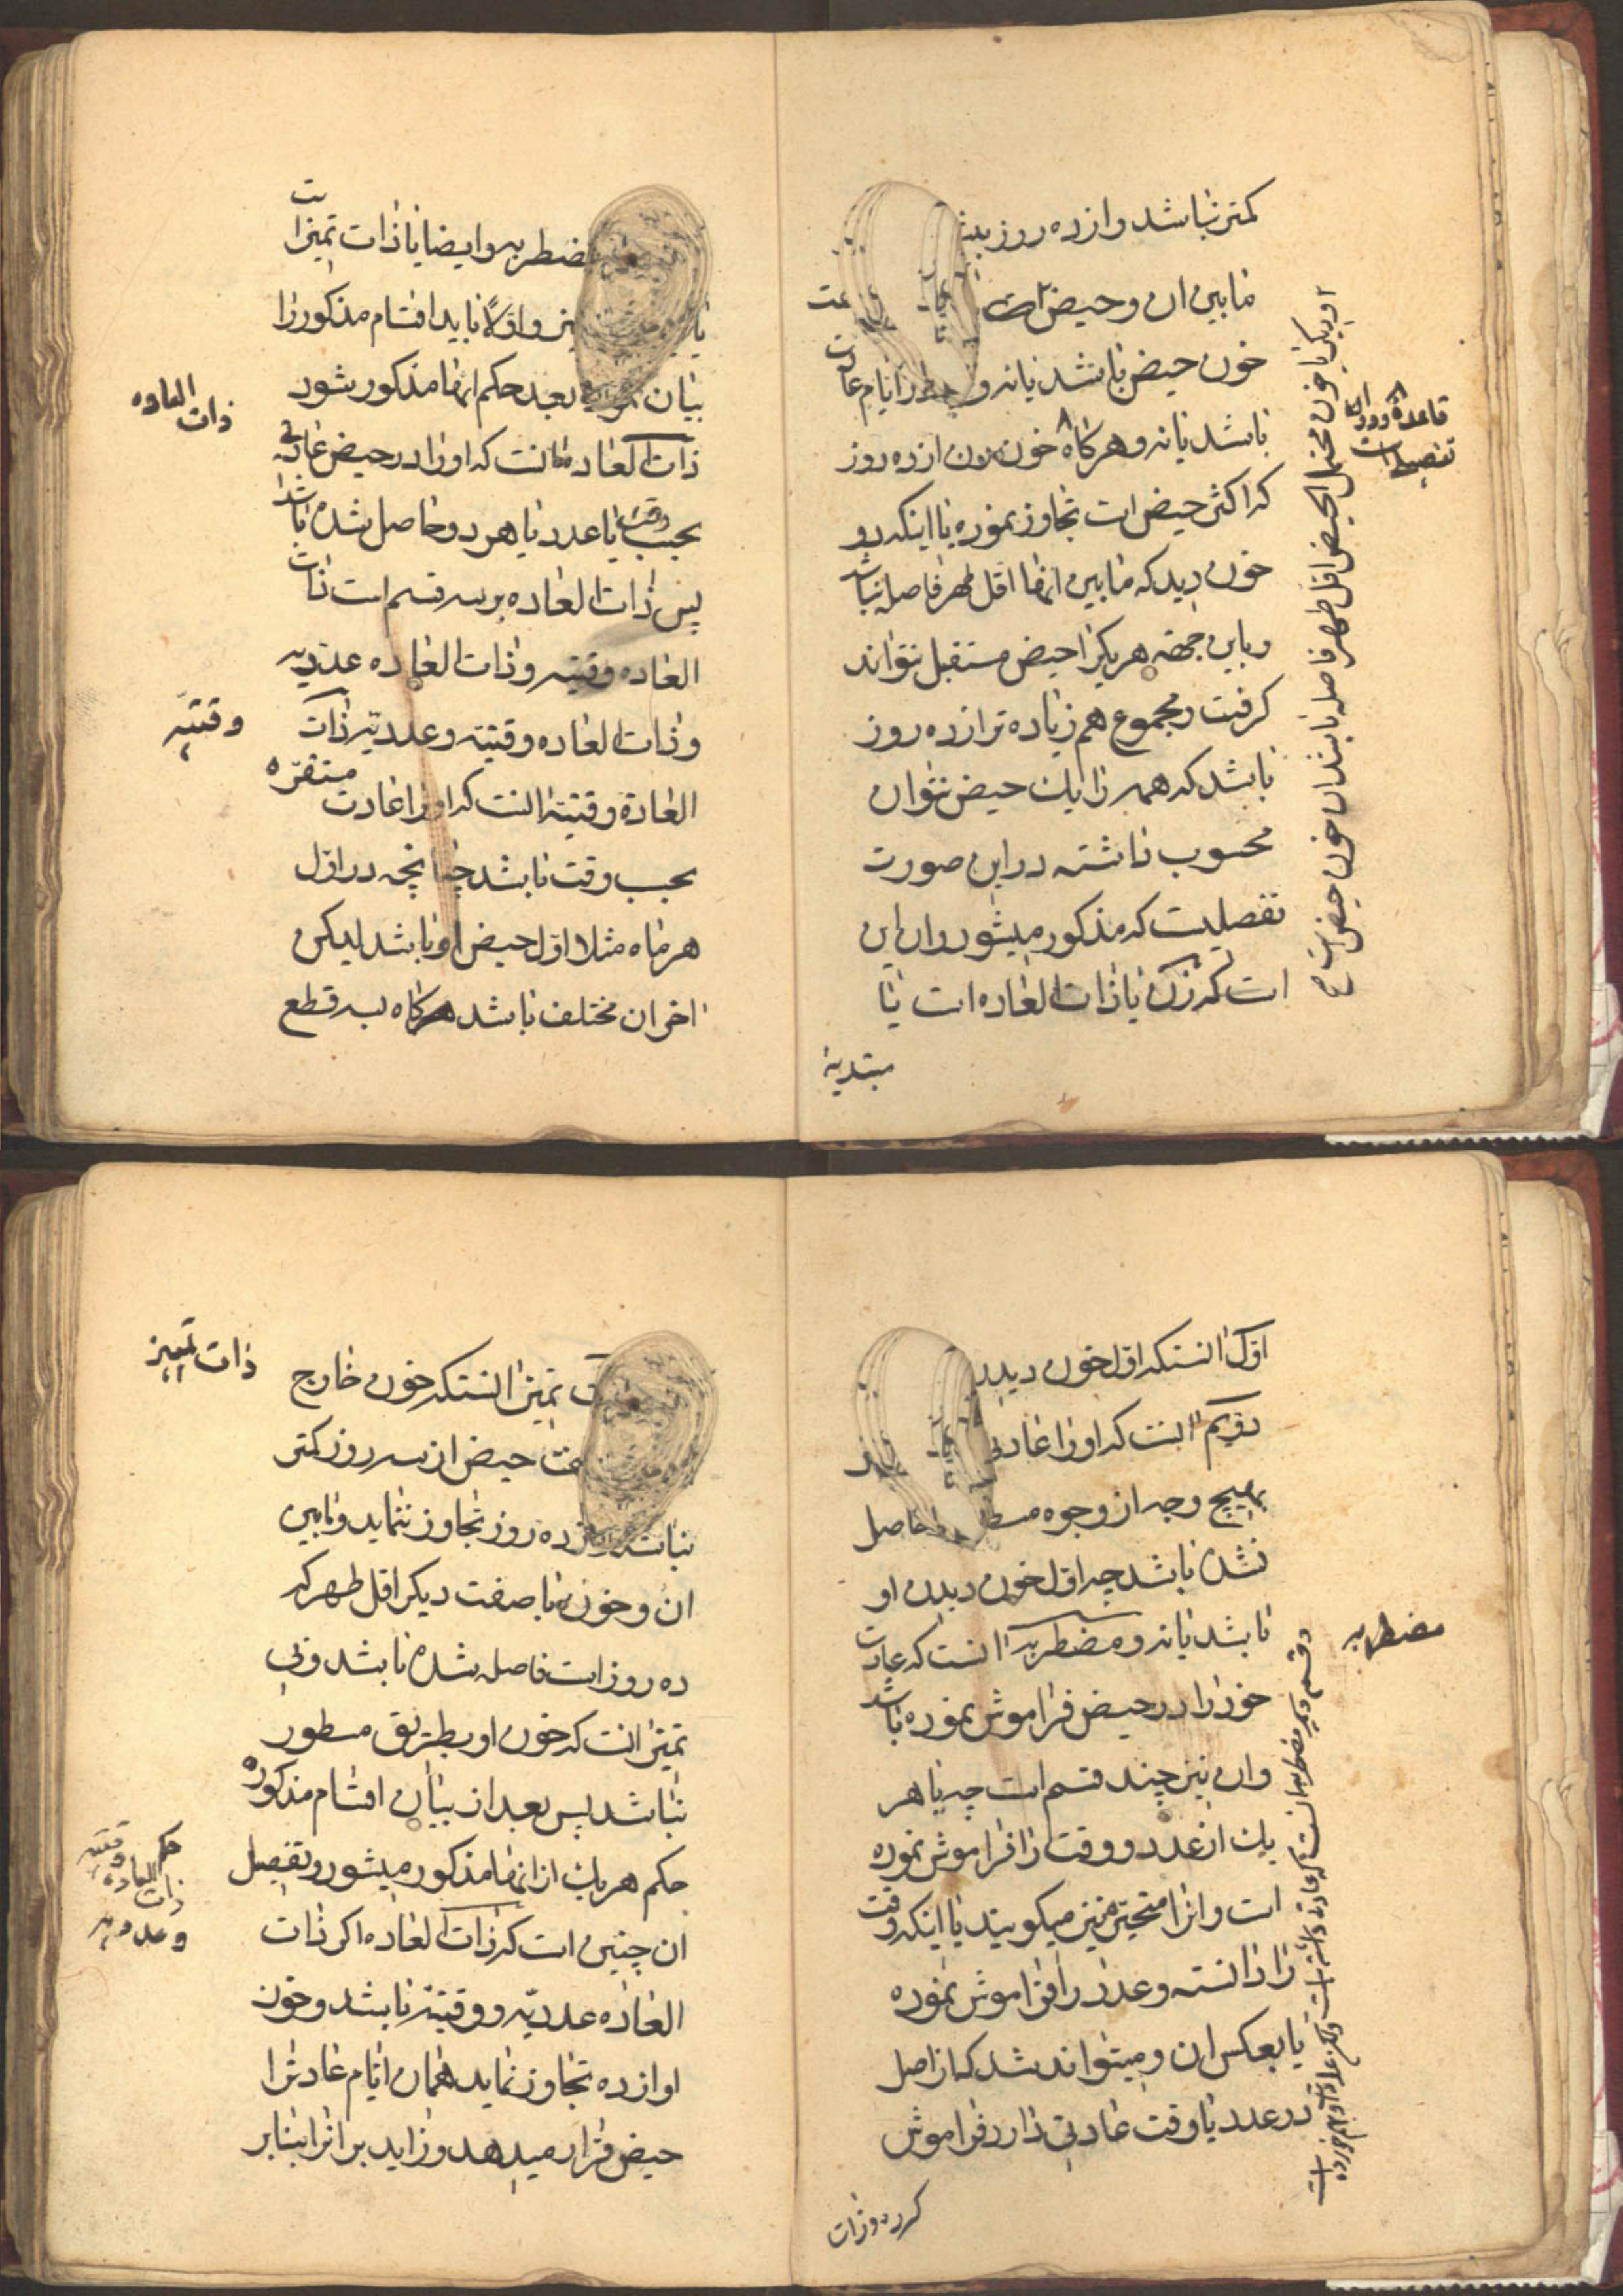 کمتر نباشد و از ده روز بیش
مابین ان و حیض است
خون حیض باشد یا نه و در ایام عادت
باشد یا نه و هرکاه خون زن از ده روز
که اکثر حیض است تجاوز نموده یا اینکه دو
خون دید که مابین انها اقل طهر فاصله نباشد
و باین جهة هر یکرا حیض مستقل نتواند
کرفت و مجموع هم زیاده تر از ده روز
باشد که همه را یک حیض نتوان
محسوب داشته در این صورت
تفصیلیست که مذکور میشود و ان این
است که زن یا ذات العاده است یا
مبتدیه
قاعده
مضطربه و ایضا یا ذات تمیز است
یا تمیز و اولا باید اقسام مذکور را
بیان نموده بعد حکم انها مذکور شود
ذات العاده انست که او را در حیض عادتی
بحسب وقت یا عدد یا هر دو حاصل شده باشد
پس ذات العاده بر سه قسم است ذات
العاده وقتیه و ذات العاده عددیه
و ذات العاده وقتیه و عددیه ذات
العادة وقتیه انست که او را عادت مستقره
بحسب وقت باشد چنانچه در اول
هر ماه مثلا اول حیض او باشد لیکن
اخر ان مختلف باشد هرکاه بسه قطع
ذات العاده
وقتیه
اول انستکه اول خون دیدن
دویم انست که او را عادتی
بهیچ وجه از وجوه مسطوره حاصل
نشده باشد چه اول خون دیدن او
باشد یا نه و مضطربه انست که عادت
خود را در حیض فراموش نموده باشد
و ان نیز چند قسم است چه یا هر
یک از عدد و وقت را فراموش نموده
است و انرا متحیره نیز میکویند یا اینکه وقت
را دانسته و عدد را فراموش نموده
یا بعکس ان و میتواند شد که از اصل
در عدد یا وقت عادتی ندارد فراموش
کرده و ذات
مضطربه
تمیز انستکه خون خارج
حیض از سه روز کمتر
نباشد و از ده روز تجاوز ننماید و مابین
ان و خون با صفت دیکر اقل طهر که
ده روز است فاصله شده باشد و بی
تمیز انست که خون او بطریق مسطور
نباشد پس بعد از بیان اقسام مذکوره
حکم هر یک از انها مذکور میشود و تفصیل
ان چنین است که ذات العاده اکر ذات
العاده عددیه و وقتیه باشد و خون
او از ده تجاوز نماید همان ایام عادتش را
حیض قرار میدهد و زاید بر انرا بنابر
ذات تمییز
حکم ذات العاده وقتیه
و عددیه